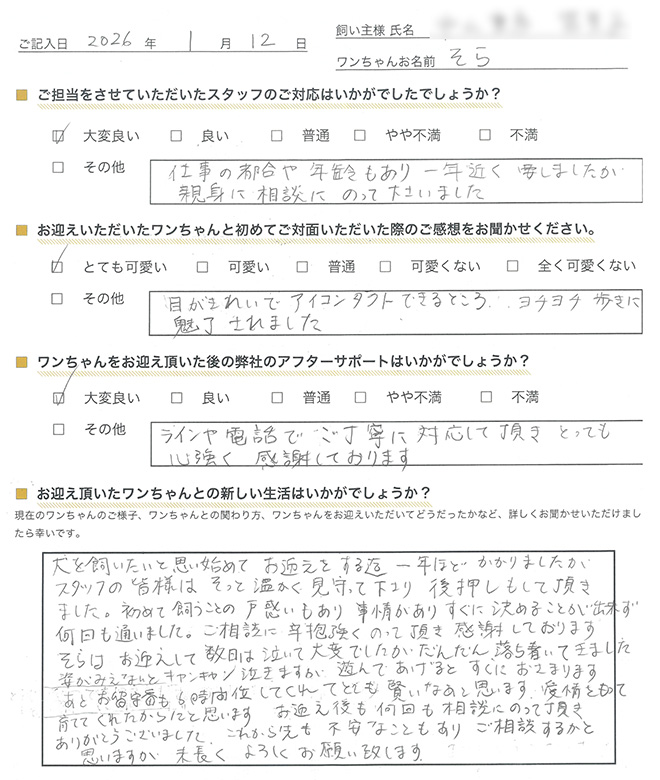 ご記入日 2026 年 1 月 12 日
飼い主様 氏名
ワンちゃんお名前 そら
■ ご担当をさせていただいたスタッフのご対応はいかがでしたでしょうか？
☑ 大変良い □ 良い □ 普通 □ やや不満 □ 不満
□ その他
仕事の都合や 年齢もあり 一年近く 要しましたが
親身に 相談に のって 下さいました
■ お迎えいただいたワンちゃんと初めてご対面いただいた際のご感想をお聞かせください。
☑ とても可愛い □ 可愛い □ 普通 □ 可愛くない □ 全く可愛くない
□ その他
目がきれいで アイコンタクトできるところ、ヨチヨチ 歩きに
魅了 されました
■ ワンちゃんをお迎え頂いた後の弊社のアフターサポートはいかがでしょうか？
☑ 大変良い □ 良い □ 普通 □ やや不満 □ 不満
□ その他
ラインや 電話で ご丁寧に 対応して 頂き とっても
心強く 感謝しております
■ お迎え頂いたワンちゃんとの新しい生活はいかがでしょうか？
現在のワンちゃんのご様子、ワンちゃんとの関わり方、ワンちゃんをお迎えいただいてどうだったかなど、詳しくお聞かせいただけまし
たら幸いです。
犬を飼いたいと思い始めて お迎えをする迄 一年ほど かかりましたが
スタッフの 皆様は そっと 温かく 見守って 下さり 後押しもして 頂き
ました。初めて 飼うことの 戸惑いもあり 事情があり すぐに 決めることが 出来ず
何回も 通いました。ご相談に 辛抱強く のって 頂き 感謝しております
そらは お迎えして 数日は 泣いて 大変でしたが だんだん 落ち着いてきました
姿がみえないと キャンキャン 泣きますが 遊んであげると すぐに おさまります
あと お留守番も 6時間位 してくれて とても 賢いなあと 思います。愛情をもって
育ててくれたからだと思います お迎え後も 何回も 相談にのって頂き
ありがとうございました。これから先も 不安なこともあり ご相談するかと
思いますが 末長く よろしくお願い致します。